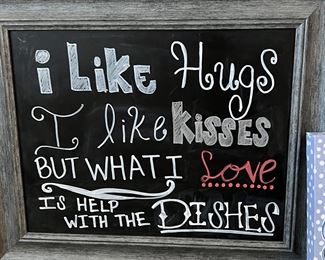 i LiKe Hugs
I like KISSES
BUT WHAT I LOVe
IS HELP
WITH THE DISHES